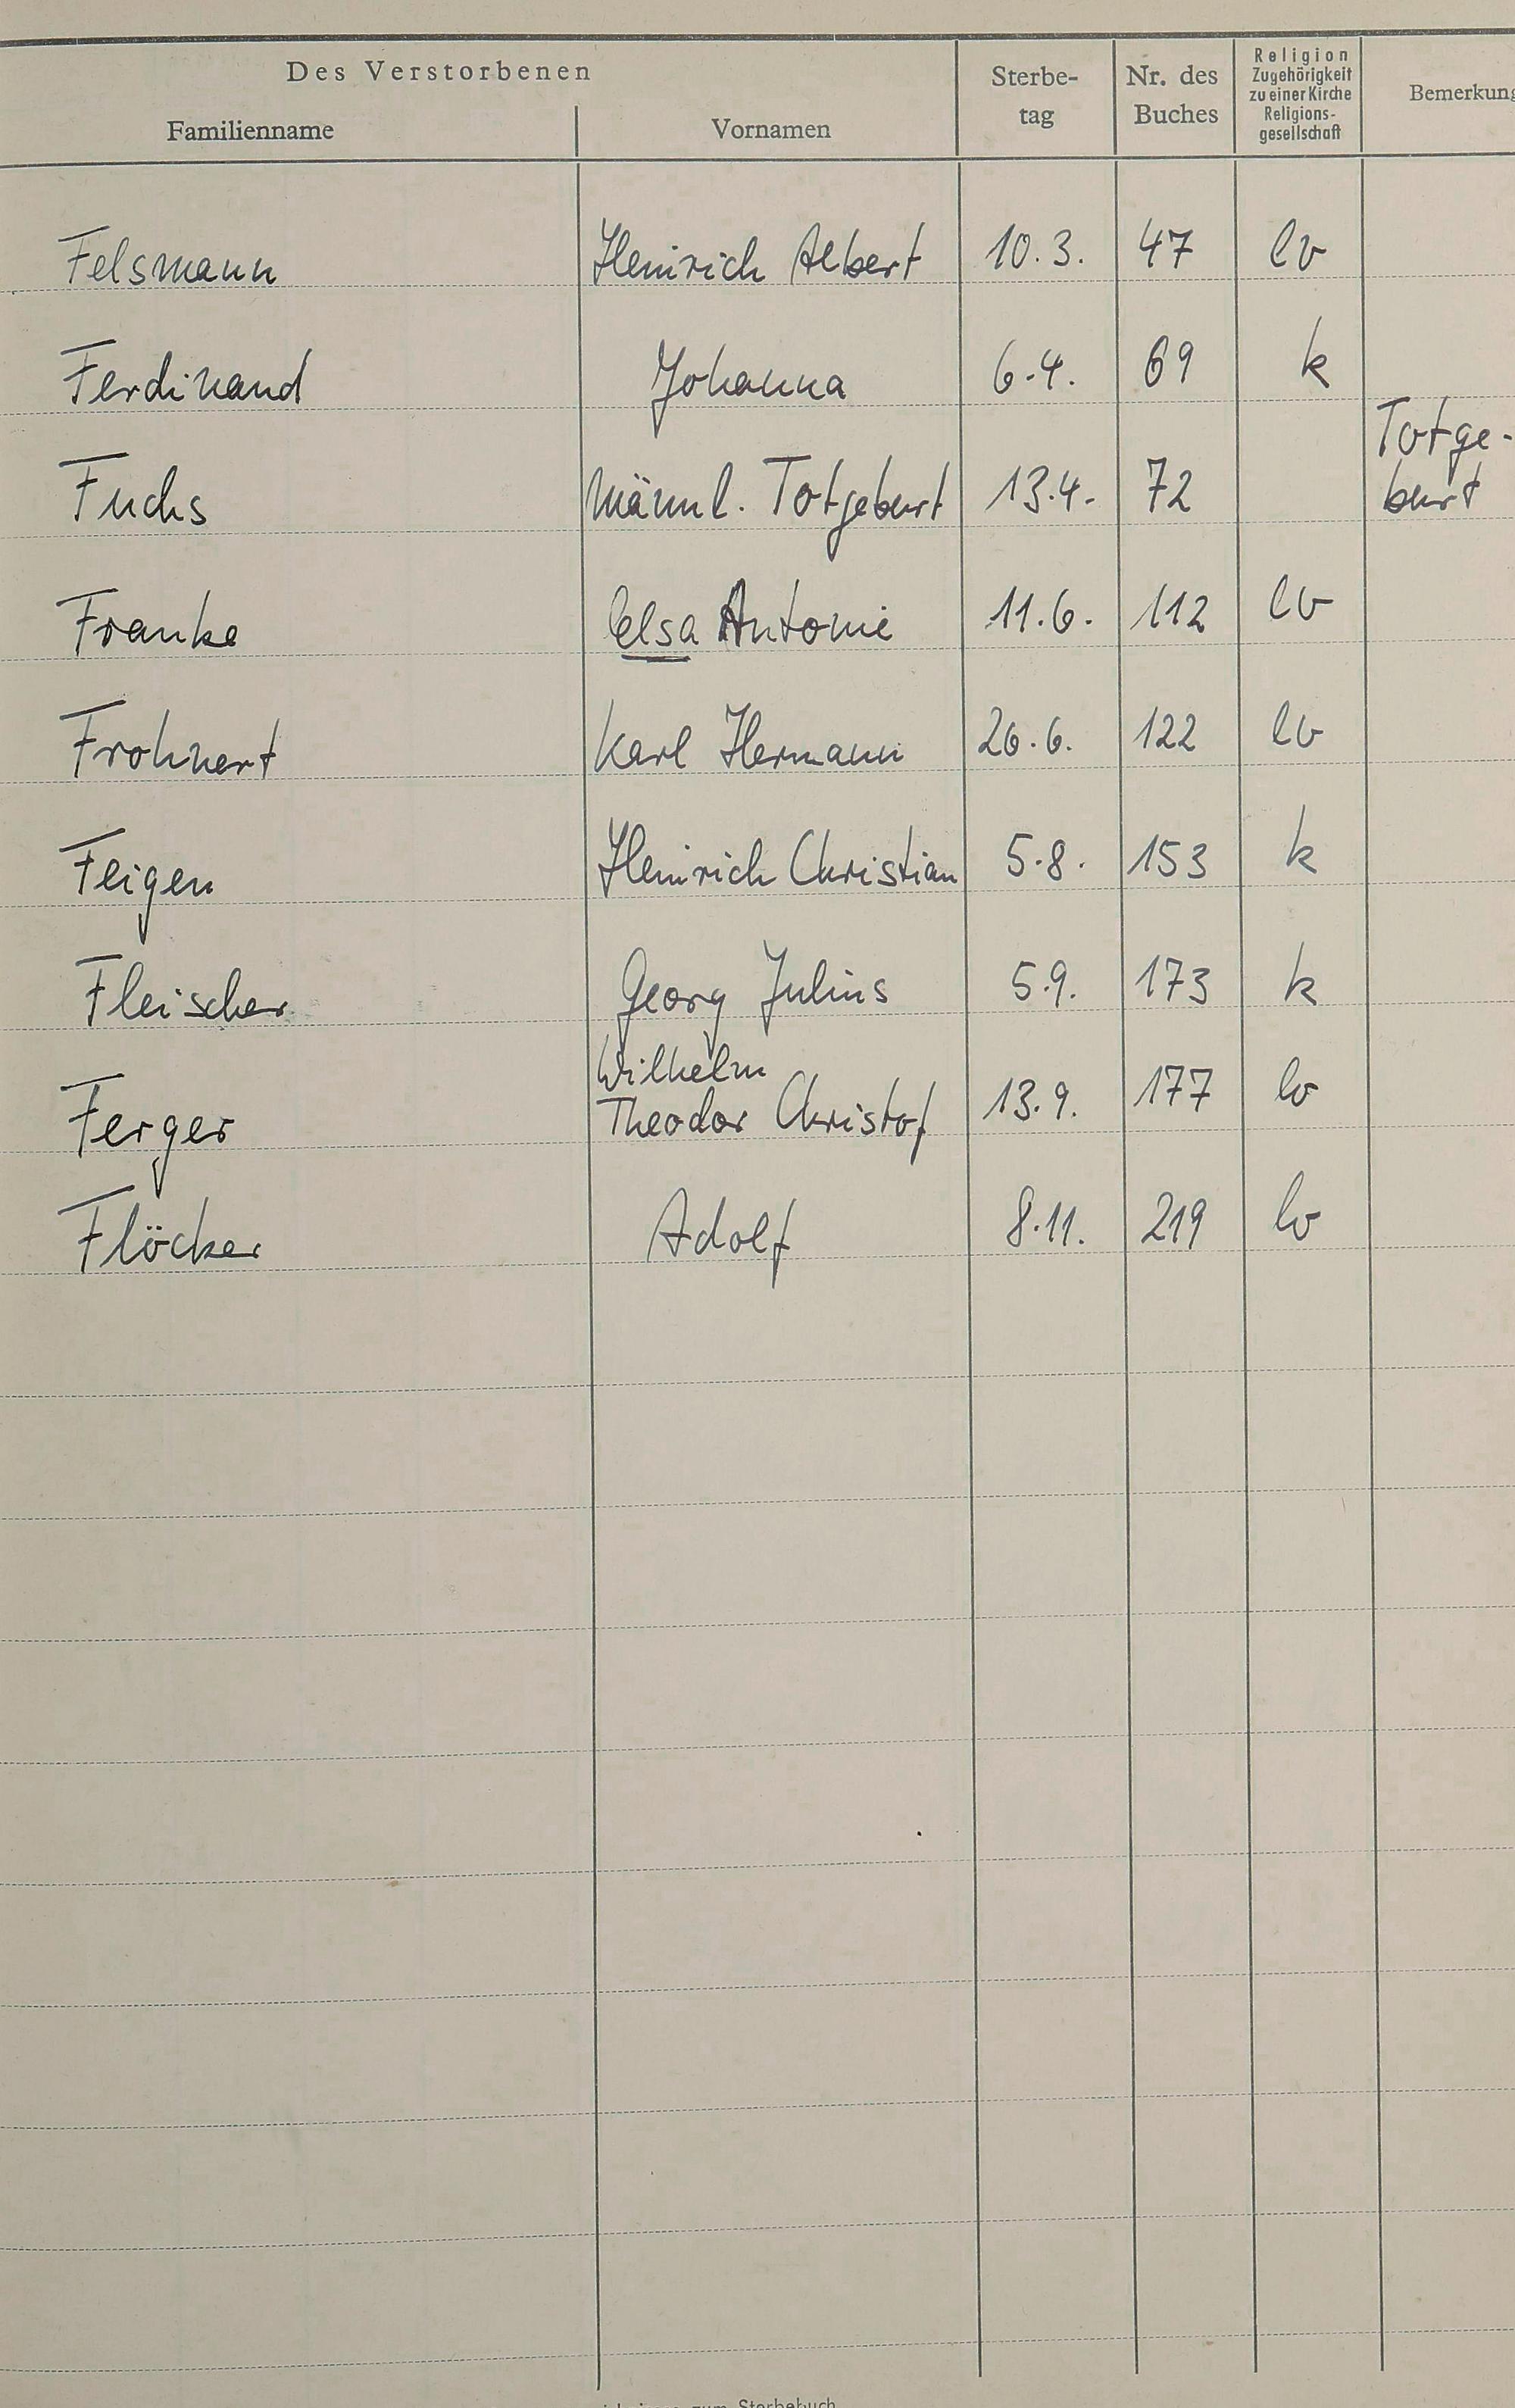 Des Verstorbenen
Familienname Vornamen Sterbe- Nr. des Religion Bemerkung
tag Buches Zugehörigkeit
zu einer Kirche
Religions-
gesellschaft
Felsmann Heinrich Albert 10.3. 47 ev
Ferdinand Johanna 6.4. 69 k
Fuchs männl. Totgeburt 13.4. 72 Totge-
burt
Franke Elsa Antonie 11.6. 112 ev
Frohnert Karl Hermann 26.6. 122 ev
Feigen Heinrich Christian 5.8. 153 k
Fleischer Georg Julius 5.9. 173 k
Wilhelm
Ferger Theodor Christof 13.9. 177 ev
Flöcker Adolf 8.11. 219 ev
zum Sterbebuch